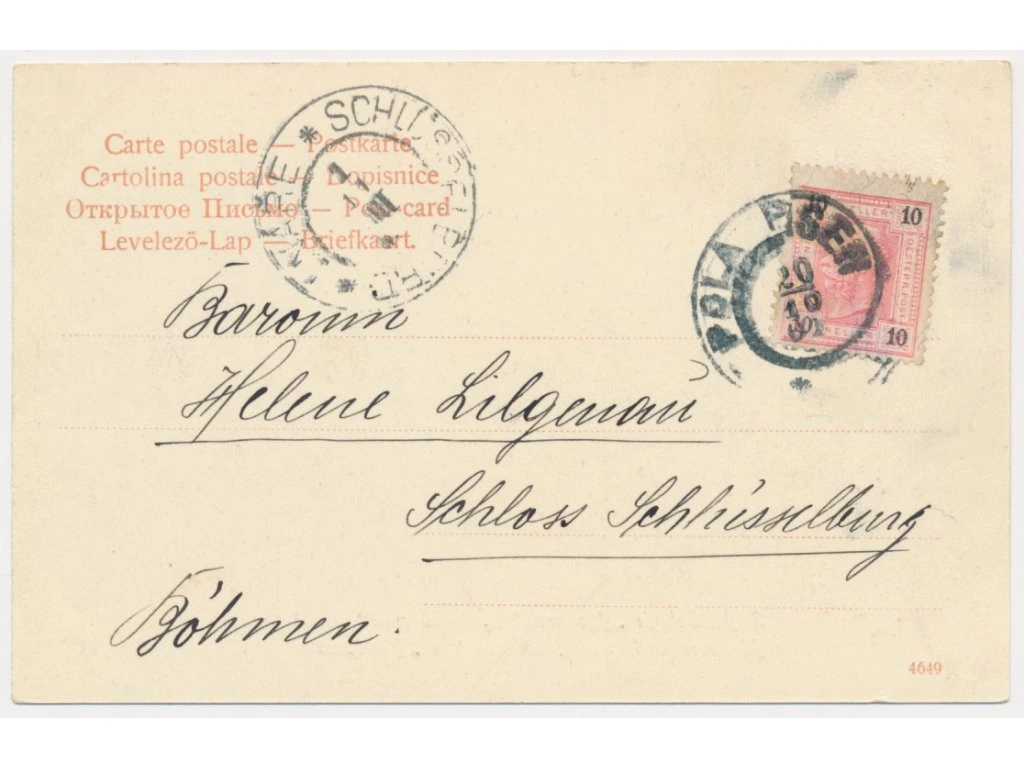 Carte postale — Postkarte
Cartolina postale — Dopisnice
Открытое Письмо — Post-card
Levelező-Lap — Briefkaart.
* SCHLÜSSELBURG * LNÁŘE
III
POLA
20
10
HELLER 10
OESTERR. POST
10
Baronin
Helene Lilgenau
Schloss Schlüsselburg
Böhmen.
4649